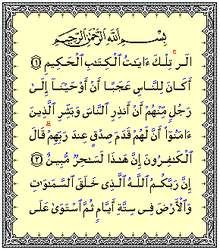 بِسْمِ ٱللَّهِ ٱلرَّحْمَٰنِ ٱلرَّحِيمِ
الٓر ۚ تِلْكَ ءَايَٰتُ ٱلْكِتَٰبِ ٱلْحَكِيمِ ١
أَكَانَ لِلنَّاسِ عَجَبًا أَنْ أَوْحَيْنَآ إِلَىٰ
رَجُلٍ مِّنْهُمْ أَنْ أَنذِرِ ٱلنَّاسَ وَبَشِّرِ ٱلَّذِينَ
ءَامَنُوٓا۟ أَنَّ لَهُمْ قَدَمَ صِدْقٍ عِندَ رَبِّهِمْ ۗ قَالَ
ٱلْكَٰفِرُونَ إِنَّ هَٰذَا لَسَٰحِرٌ مُّبِينٌ ٢
إِنَّ رَبَّكُمُ ٱللَّهُ ٱلَّذِى خَلَقَ ٱلسَّمَٰوَٰتِ
وَٱلْأَرْضَ فِى سِتَّةِ أَيَّامٍ ثُمَّ ٱسْتَوَىٰ عَلَى